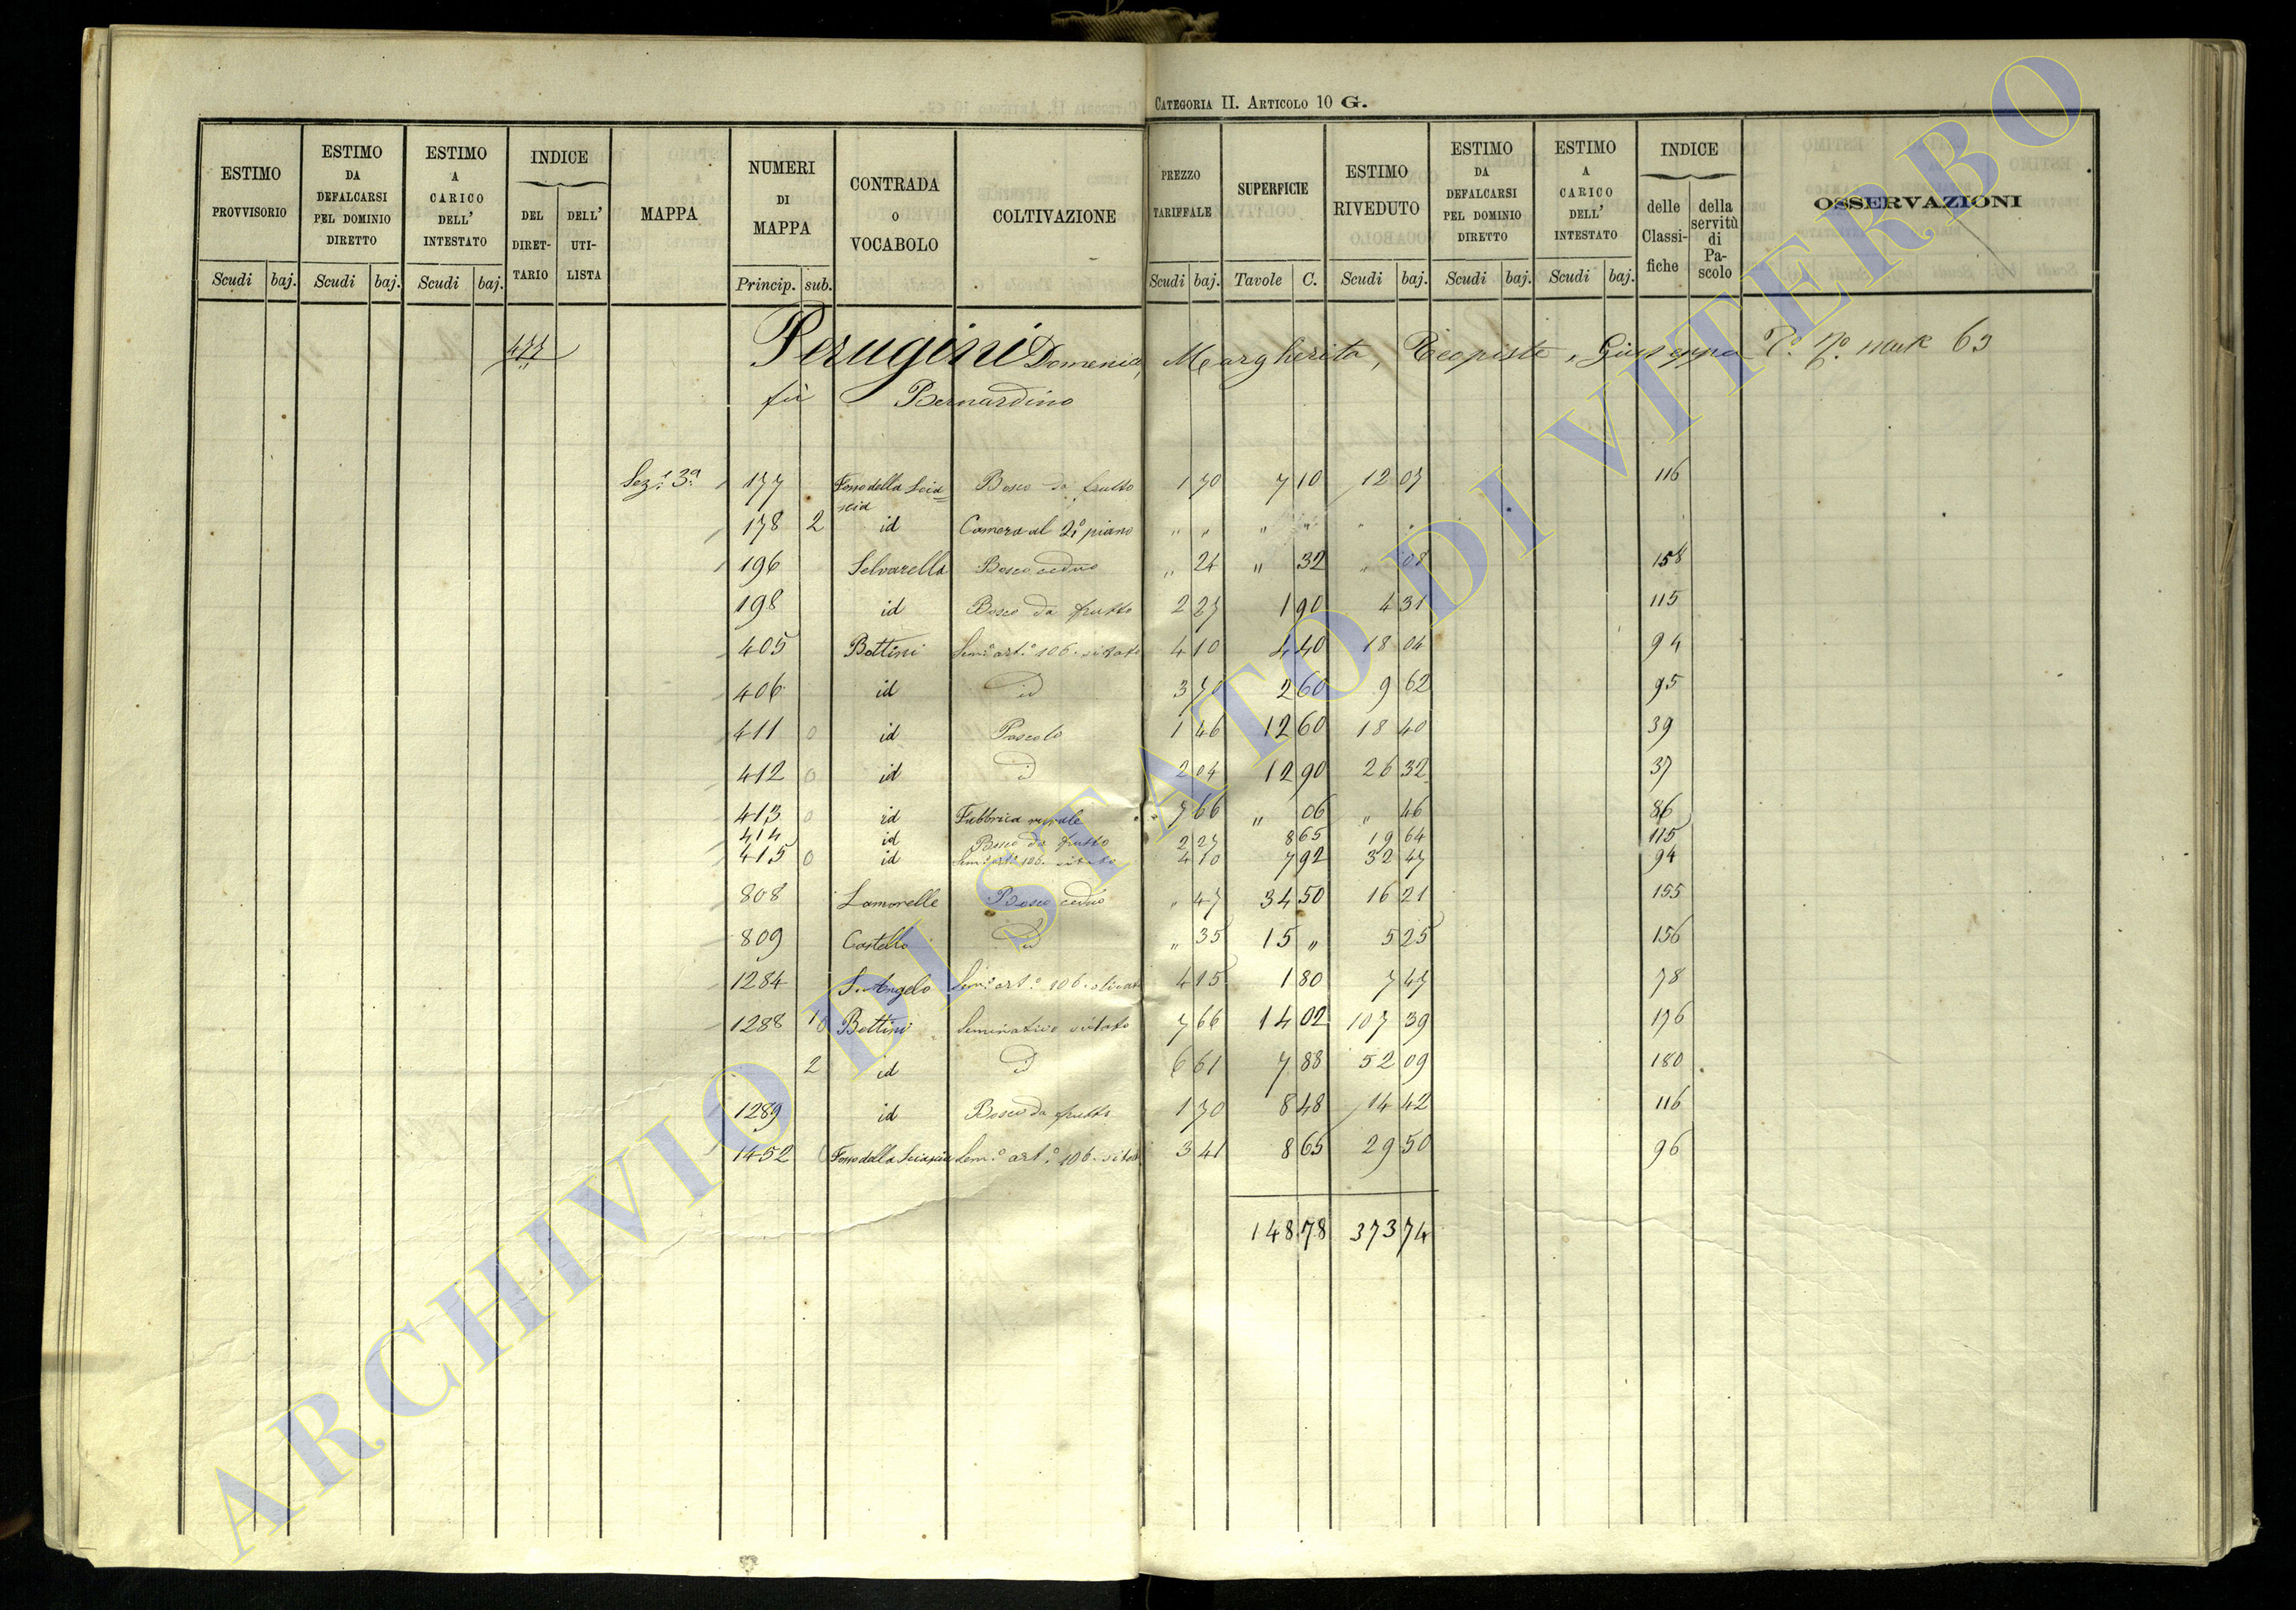 CATEGORIA II. ARTICOLO 10 G.
ESTIMO PROVVISORIO | ESTIMO DA DEFALCARSI PEL DOMINIO DIRETTO | ESTIMO A CARICO DELL' INTESTATO | INDICE | MAPPA | NUMERI DI MAPPA | CONTRADA O VOCABOLO | COLTIVAZIONE | PREZZO TARIFFALE | SUPERFICIE | ESTIMO RIVEDUTO | ESTIMO DA DEFALCARSI PEL DOMINIO DIRETTO | ESTIMO A CARICO DELL' INTESTATO | INDICE | OSSERVAZIONI
DEL DIRETTARIO | DELL' UTILISTA | delle Classifiche | della servitù di Pascolo
Scudi | baj. | Scudi | baj. | Scudi | baj. | Princip. | sub. | Scudi | baj. | Tavole | C. | Scudi | baj. | Scudi | baj. | Scudi | baj.
477 Perugini Domenica, Margherita, Teopiste, Giuseppa 63
fù Bernardino
Sez.e 3a 177 Fosso della Sciascia Bosco da frutto 1 70 7 10 12 07 116
178 2 id Camera al 2o piano " " " " " "
196 Selvarella Bosco ceduo " 24 " 32 " 08 158
198 id Bosco da frutto 2 27 1 90 4 31 115
405 Bottini Sem.o art.o 106. vitato 4 10 4 40 18 04 94
406 id id 3 70 2 60 9 62 95
411 0 id Pascolo 1 46 12 60 18 40 39
412 0 id id 2 04 12 90 26 32 37
413 0 id Fabbrica rurale 7 66 " 06 " 46 86
414 id Bosco da frutto 2 27 8 65 19 64 115
415 0 id Sem.o art.o 106. vitato 4 10 7 92 32 47 94
808 Lamorelle Bosco ceduo " 47 34 50 16 21 155
809 Castello id " 35 15 " 5 25 156
1284 S. Angelo Sem.o art.o 106. olivat 4 15 1 80 7 47 78
1288 1 0 Bottini Seminativo vitato 7 66 14 02 107 39 176
2 id id 6 61 7 88 52 09 180
1289 id Bosco da frutto 1 70 8 48 14 42 116
1452 Fosso della Sciascia Sem.o art.o 106. vitat 3 41 8 65 29 50 96
148 78 373 74
ARCHIVIO DI STATO DI VITERBO